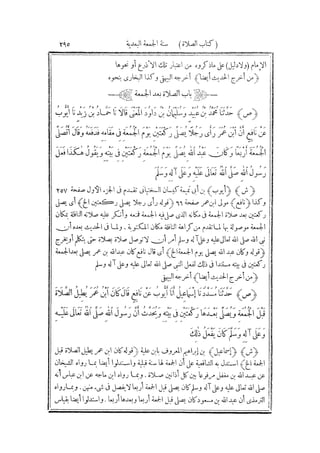 (كتاب الصلاة) سنة الجمعة البعدية ٢٩٥
الإمام (ولا دليل) على ما ذكروه من اعتبار تلك الأذرع أو نحوها
(من أخرج الحديث أيضا) أخرجه البيهقي وكذا البخارى بنحوه
باب الصلاة بعد الجمعة
(ص) حدثنا محمد بن عبيد وسليمان بن داود المعنى قالا نا حماد بن زيد نا أيوب
عن نافع أن ابن عمر رأى رجلا يصلى ركعتين يوم الجمعة فى مقامه فدفعه وقال أتصلى
الجمعة أربعا وكان عبد الله يصلى يوم الجمعة ركعتين فى بيته ويقول هكذا فعل
رسول الله صلى الله تعالى عليه وعلى آله وسلم
(ش) (أيوب) بن أبى تميمة كيسان السختيانى تقدم فى الجزء الأول صفحة ٢٥٧
وكذا (نافع) مولى ابن عمر صفحة ٦٦ (قوله رأى رجلا يصلى ركعتين الخ) أى يصلى
ركعتين بعد صلاة الجمعة فى مكانه الذى صلى فيه الجمعة فدفعه وأنكر عليه صلاته النافلة بمكان
الجمعة موصولة بها لما تقدم من كراهة النافلة مكان المكتوبة. ولما فى الحديث بعده أن
نبى الله صلى الله تعالى عليه وعلى آله وسلم أمر أن لا توصل صلاة بصلاة حتى يتكلم أو يخرج
(قوله وكان عبد الله يصلى يوم الجمعة الخ) أى قال نافع كان عبد الله بن عمر يصلى بعد الجمعة
ركعتين فى بيته مستندا فى ذلك لفعل النبى صلى الله تعالى عليه وعلى آله وسلم
(من أخرج الحديث أيضا) أخرجه البيهقي
(ص) حدثنا مسدد نا إسماعيل أنا أيوب عن نافع قال كان ابن عمر يطيل الصلاة
قبل الجمعة ويصلى بعدها ركعتين فى بيته ويحدث أن رسول الله صلى الله تعالى عليه
وعلى آله وسلم كان يفعل ذلك
(ش) (إسماعيل) بن إبراهيم المعروف بابن علية (قوله كان ابن عمر يطيل الصلاة قبل
الجمعة الخ) استدل به الشافعية على أن الجمعة لها سنة قبلية واستدلوا أيضا بما رواه الشيخان
عن عبد الله بن مغفل مرفوعا بين كل أذانين صلاة. وبما رواه ابن ماجه عن ابن عباس أنه
صلى الله تعالى عليه وعلى آله وسلم كان يصلى قبل الجمعة أربعا لا يفصل فى شىء منهن. وبما رواه
الترمذى أن عبد الله بن مسعود كان يصلى قبل الجمعة أربعا وبعدها أربعا. واستدلوا أيضا بقياس